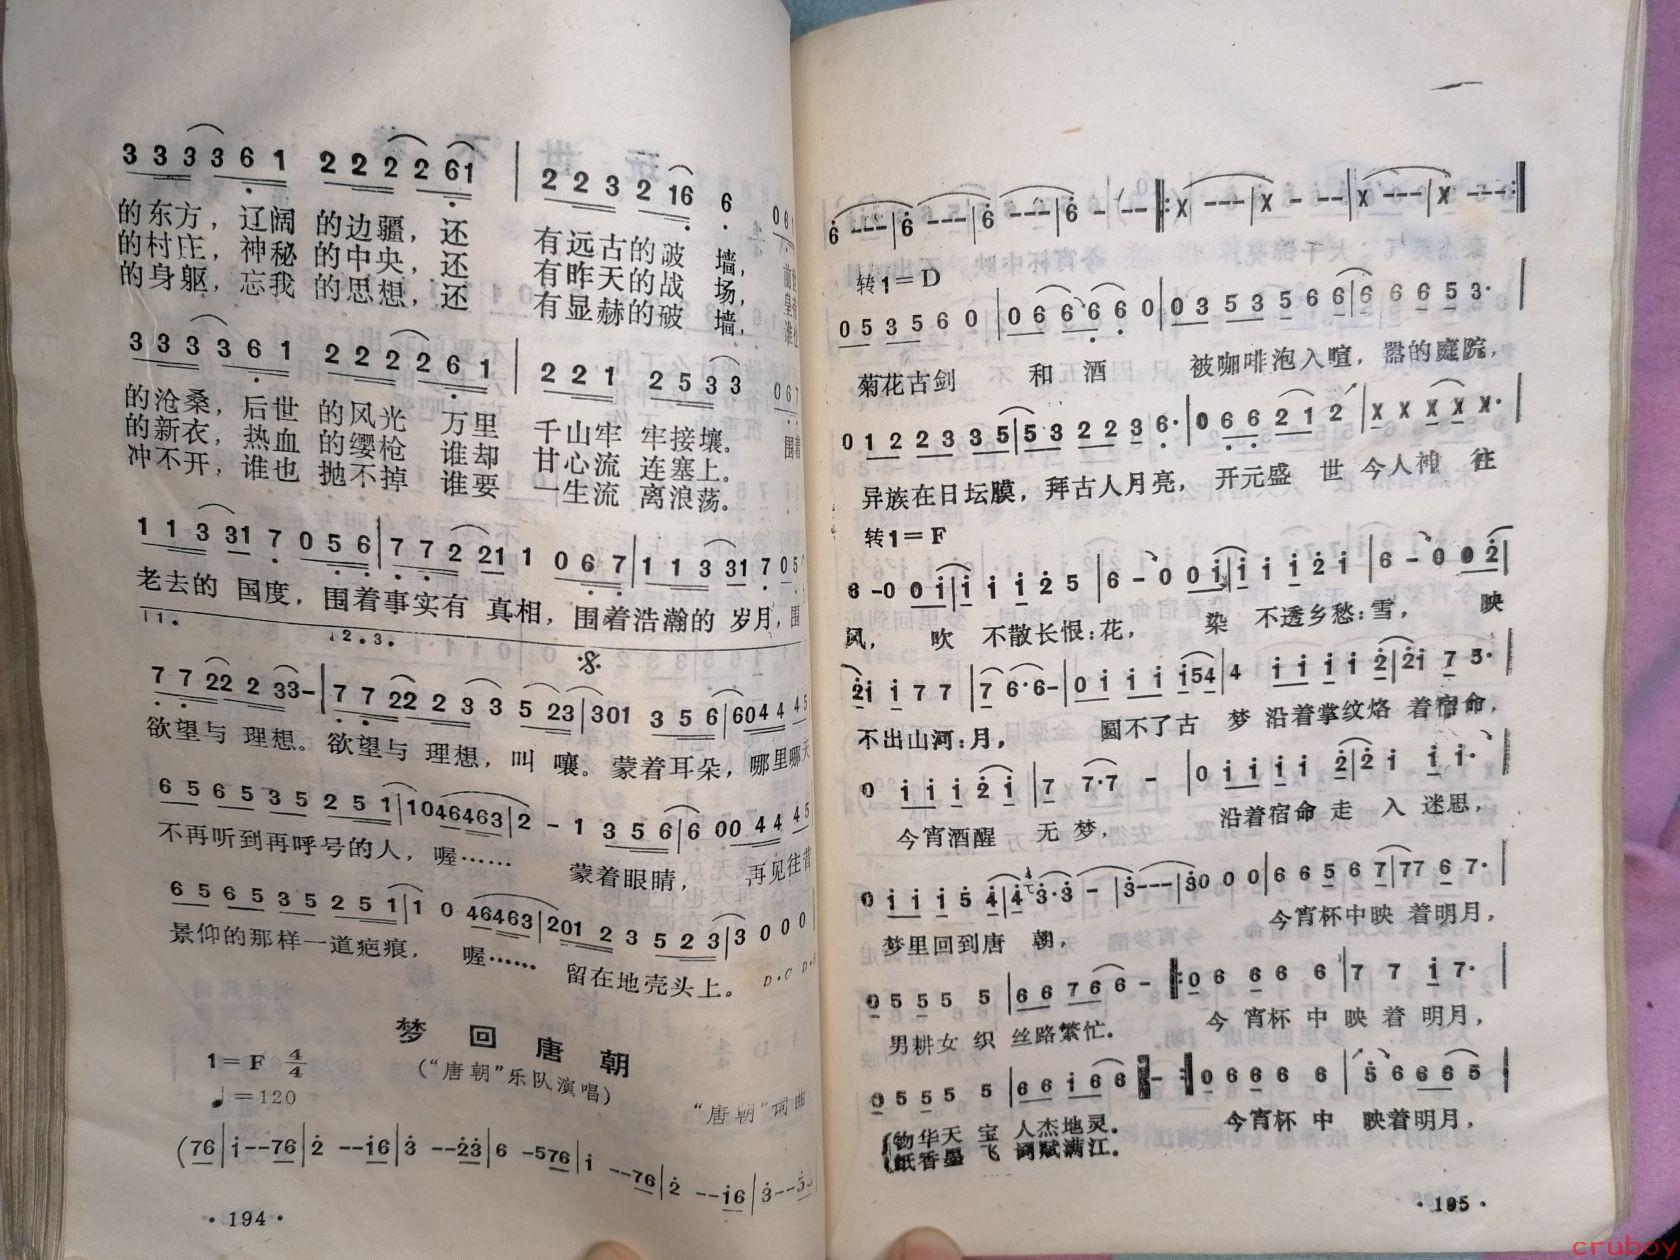 3 3 3 3 6 1 2 2 2 2 6 1 | 2 2 3 2 1 6 6 0 6
的东方，辽阔 的边疆，还 有远古的破 墙，
的村庄，神秘 的中央，还 有昨天的战 场，
的身躯，忘我 的思想，还 有显赫的破 墙，
3 3 3 3 6 1 2 2 2 2 6 1 | 2 2 1 2 5 3 3 0 6 7
的沧桑，后世 的风光 万里 千山牢 牢接壤。 围着
的新衣，热血 的缨枪 谁却 甘心流 连塞上。
冲不开，谁也 抛不掉 谁要 一生流 离浪荡。
1 1 3 31 7 0 5 6 | 7 7 2 21 1 0 6 7 | 1 1 3 31 7 0 5
老去的 国度，围着事实有 真相，围着浩瀚的 岁月，围
1. 2.3.
7 7 22 2 33- | 7 7 22 2 3 3 5 23 | 301 3 5 6 | 6044 45
欲望与 理想。欲望与 理想，叫 嚷。蒙着耳朵，哪里哪天
6 5 6 5 3 5 2 5 1 | 1046463 | 2 - 1 3 5 6 | 6 00 44 45
不再听到再呼号的人，喔…… 蒙着眼睛， 再见往昔
6 5 6 5 3 5 2 5 1 | 1 0 46463 | 201 2 3 5 2 3 | 3 0 0 0
景仰的那样一道疤痕， 喔…… 留在地壳头上。 D·C D·S
梦回唐朝
1＝F 4/4 （“唐朝”乐队演唱）
♩＝120 “唐朝”词曲
(76 | i--76 | 2 --i6 | 3 --23 | 6 -576 | i --76 | 2 --i6 | 3--5
·194·
6 --- | 6 --- | 6 --- | 6 - -- ) ‖: X --- | X - -- | X --- | X --- :‖
转1＝D
0 5 3 5 6 0 | 0 6 6 6 6 0 | 0 3 5 3 5 6 6 | 6 6 6 5 3·
菊花古剑 和 酒 被咖啡泡入喧，嚣的庭院，
0 1 2 2 3 3 5 | 5 3 2 2 3 6· | 0 6 6 2 1 2 | X X X X X·
异族在日坛膜，拜古人月亮，开元盛 世 今人神 往
转1＝F
6 -0 0 i | i i i 2 5 | 6 - 0 0 i | i i i 2 i | 6 - 0 0 2
风， 吹 不散长恨：花， 染 不透乡愁：雪， 映
2i i 7 7 | 7 6·6- | 0 i i i i54 | 4 i i i i 2 | 2i 7 5·
不出山河：月， 圆不了古 梦 沿着掌纹烙 着宿命，
0 i i i 2 i | 7 7·7 - | 0 i i i i 2 | 2 i i i·
今宵酒醒 无梦， 沿着宿命 走 入 迷思，
0 i i i 5 4 | 4 3·3 - | 3--- | 30 0 0 | 6 6 5 6 7 | 77 6 7·
梦里回到唐 朝， 今宵杯中映 着明月，
0 5 5 5 5 | 6 6 7 6 6 - ‖: 0 6 6 6 6 | 7 7 i 7·
男耕女 织 丝路繁忙。 今 宵杯 中 映 着 明月，
0 5 5 5 5 | 6 6 i 6 6 - :‖ 0 6 6 6 6 | 5 6 6 6 5
物华天 宝 人杰地灵。 今宵杯 中 映着明月，
纸香墨 飞 词赋满江。
·195·
cruboy